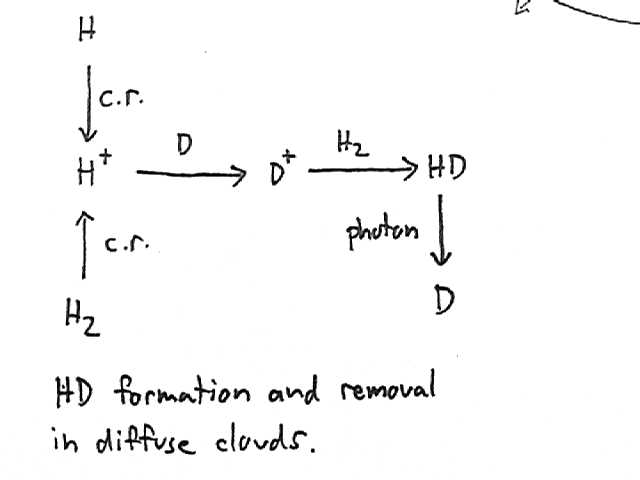 H
c.r.
H⁺ D D⁺ H₂ HD
c.r. photon
H₂ D
HD formation and removal
in diffuse clouds.